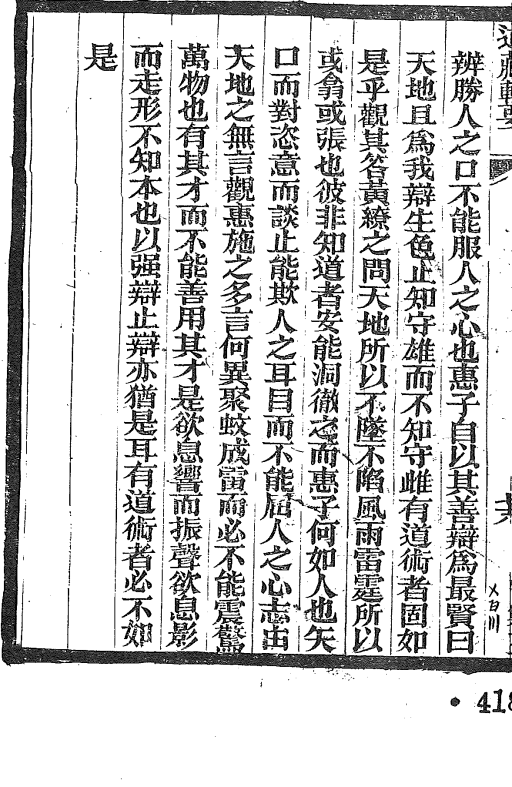 道藏輯要
辨勝人之口不能服人之心也惠子自以其善辯爲最賢曰
天地且爲我辯生色止知守雄而不知守雌有道術者固如
是乎觀其答黃繚之問天地所以不墜不陷風雨雷霆所以
或翕或張也彼非知道者安能洞徹之而惠子何如人也矢
口而對恣意而談止能欺人之耳目而不能屈人之心志由
天地之無言觀惠施之多言何異聚蚊成雷而必不能震驚
萬物也有其才而不能善用其才是欲息響而振聲欲息影
而走形不知本也以强辯止辯亦猶是耳有道術者必不如
是
• 418